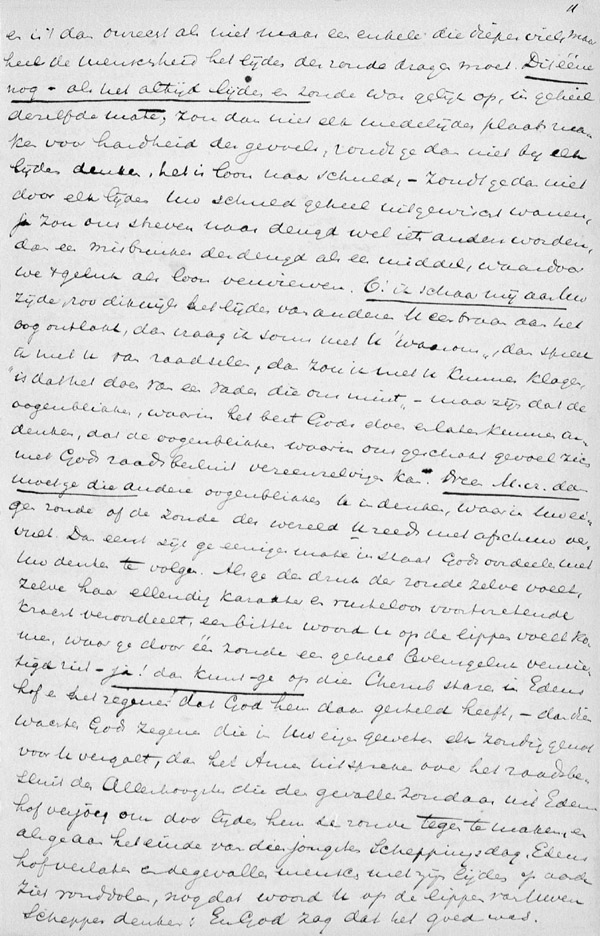 11
er is 't dan onrecht als niet maar een enkele die dieper viel, maar
heel de menschheid het lijden der zonde dragen moet. Dit ééne
nog - als het altijd lijden en zonde was gelijk op, in geheel
dezelfde mate, zou dan niet elk medelijden plaats ma-
ken voor hardheid des gevoels, zoudt ge dan niet bij elk
lijden denken, het is loon naar schuld, - zoudt ge dan niet
door elk lijden uw schuld geheel uitgewischt wanen,
ja zou ons streven naar deugd wel iets anders worden,
dan een misbruiken der deugd als een middel, waardoor
we 't geluk als loon verwierven. O! ik schaar mij aan Uw
zijde, zoo dikwijls het lijden van anderen U een traan aan het
oog ontlokt, dan vraag ik soms met U "waarom", dan spreek
ik met U van raadselen, dan zou ik met U kunnen klagen,
"is dat het doen van een vader die ons mint" - maar zijn dat de
oogenblikken, waarin het best Gods doen en laten kunnen
denken, dat de oogenblikken waarin ons geschokt gevoel zich
met Gods raadsbesluit vereenzelvigen kan? Neen M.W. dan
moet ge die andere oogenblikken U indenken, waarin Uw ei-
gen zonde of de zonde der wereld U reeds met afschuw ver-
vult. Dan eerst zijt ge eenigermate in staat Gods oordeelen met
Uw denken te volgen. Als ge den druk der zonde zelve voelt,
zelve haar ellendig karakter en rusteloos voortvretende
kracht veroordeelt, een bitter woord U op de lippen voelt ko-
men, waar ge door één zonde een geheel levensgeluk vernie-
tigd ziet - ja! dan kunt ge op dien Cherub staren in Edens
hof en het zegenen! dat God hem daar gesteld heeft, - dan dien
waarster God zegenen die in Uw eigen geweten elk zondig genot
voor U vergalt, dan het Amen uitspreken over het raadsbe-
sluit des Allerhoogsten die den gevallen zondaar uit Edens
hof verjoeg om door lijden hem de zonde tegen te maken, en
als ge aan het einde van dien jongsten Scheppingsdag, Edens
hof verlaten en de gevallen mensch met zijn lijden op aarde
ziet ronddolen, nog dat woord U op de lippen van Uwen
Schepper denken: En God zag dat het goed was.